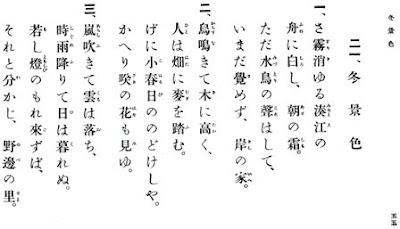 冬景色
二一、冬景色
一、さ霧消ゆる湊江の
舟に白し、朝の霜。
ただ水鳥の聲はして、
いまだ覺めず、岸の家。
二、烏鳴きて木に高く、
人は畑に麥を踏む。
げに小春日ののどけしや。
かへり咲の花も見ゆ。
三、嵐吹きて雲は落ち、
時雨降りて日は暮れぬ。
若し燈のもれ來ずば、
それと分かじ、野邊の里。
五五